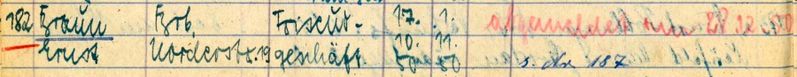 182 Braun Frb, Friseur- 17. 1. abgemeldet am 28.12.50
Ernst Norderstr. 19 geschäft 10. 11. 50 50 s. Nr 187